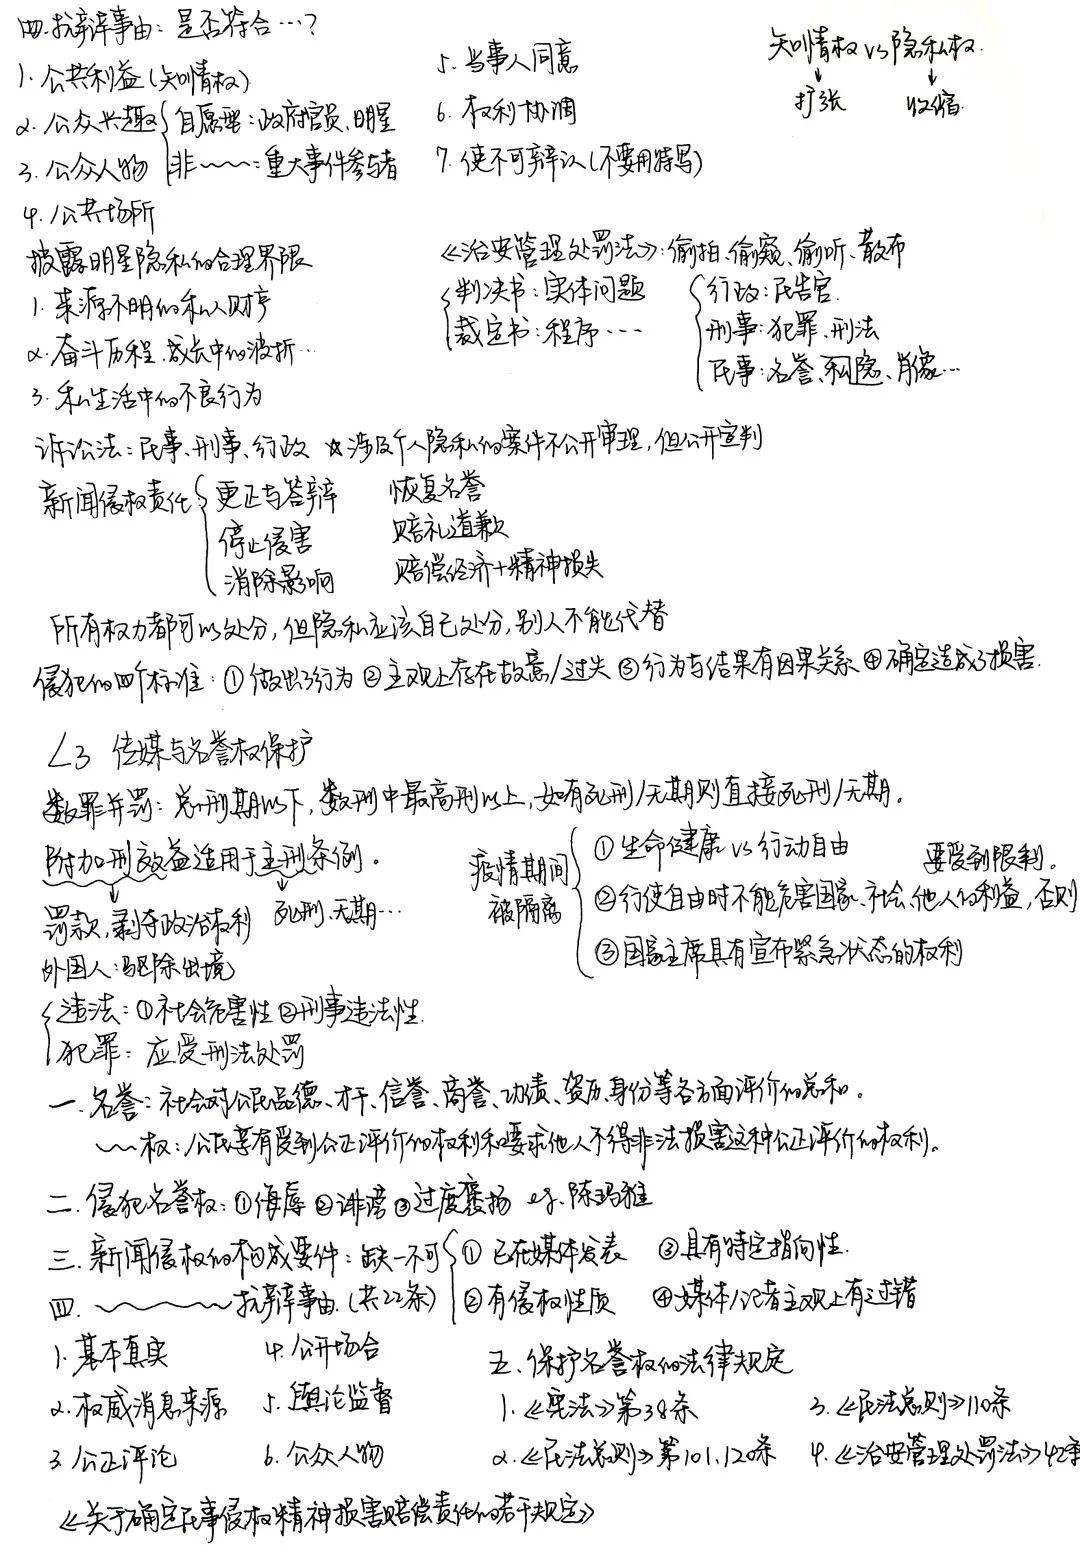 四.抗辩事由：是否符合…？
1.公共利益(知情权)
2.公众兴趣
3.公众人物
自愿型：政府官员、明星
非～～：重大事件参与者
4.公共场所
5.当事人同意
6.权利协调
7.使不可辩认(不要用特写)
知情权 vs 隐私权.
扩张 收缩.
披露明星隐私的合理界限
1.来源不明的私人财产
2.奋斗历程.成长中的波折…
3.私生活中的不良行为
《治安管理处罚法》：偷拍、偷窥、偷听、散布
判决书：实体问题
裁定书：程序…
行政：民告官.
刑事：犯罪、刑法
民事：名誉、私隐、肖像…
诉讼法：民事、刑事、行政 ☆涉及个人隐私的案件不公开审理，但公开宣判
新闻侵权责任
更正与答辩 恢复名誉
停止侵害 赔礼道歉
消除影响 赔偿经济+精神损失
所有权力都可以处分，但隐私应该自己处分，别人不能代替
侵犯的四个标准：①做出了行为 ②主观上存在故意/过失 ③行为与结果有因果关系 ④确定造成了损害.
∠3 传媒与名誉权保护
数罪并罚：总刑期以下，数刑中最高刑以上，如有死刑/无期则直接死刑/无期。
附加刑效益适用于主刑条例。
罚款，剥夺政治权利 死刑、无期…
外国人：驱除出境
疫情期间被隔离
①生命健康 vs 行动自由
②行使自由时不能危害国家、社会、他人的利益，否则要受到限制。
③国家主席具有宣布紧急状态的权利
违法：①社会危害性 ②刑事违法性.
犯罪：应受刑法处罚
一.名誉：社会对公民品德、才干、信誉、商誉、功绩、资历、身份等各方面评价的总和。
～～权：公民享有受到公正评价的权利和要求他人不得非法损害这种公正评价的权利。
二.侵犯名誉权：①侮辱 ②诽谤 ③过度褒扬 eg.陈玛雅
三.新闻侵权的构成要件：缺一不可
①已在媒体发表 ③具有特定指向性.
②有侵权性质 ④媒体/记者主观上有过错
四.～～～～抗辩事由.(共22条)
1.基本真实 4.公开场合
2.权威消息来源 5.舆论监督
3.公正评论 6.公众人物
五.保护名誉权的法律规定
1.《宪法》第38条 3.《民法总则》110条
2.《民法总则》第101、120条 4.《治安管理处罚法》42条
《关于确定民事侵权精神损害赔偿责任的若干规定》